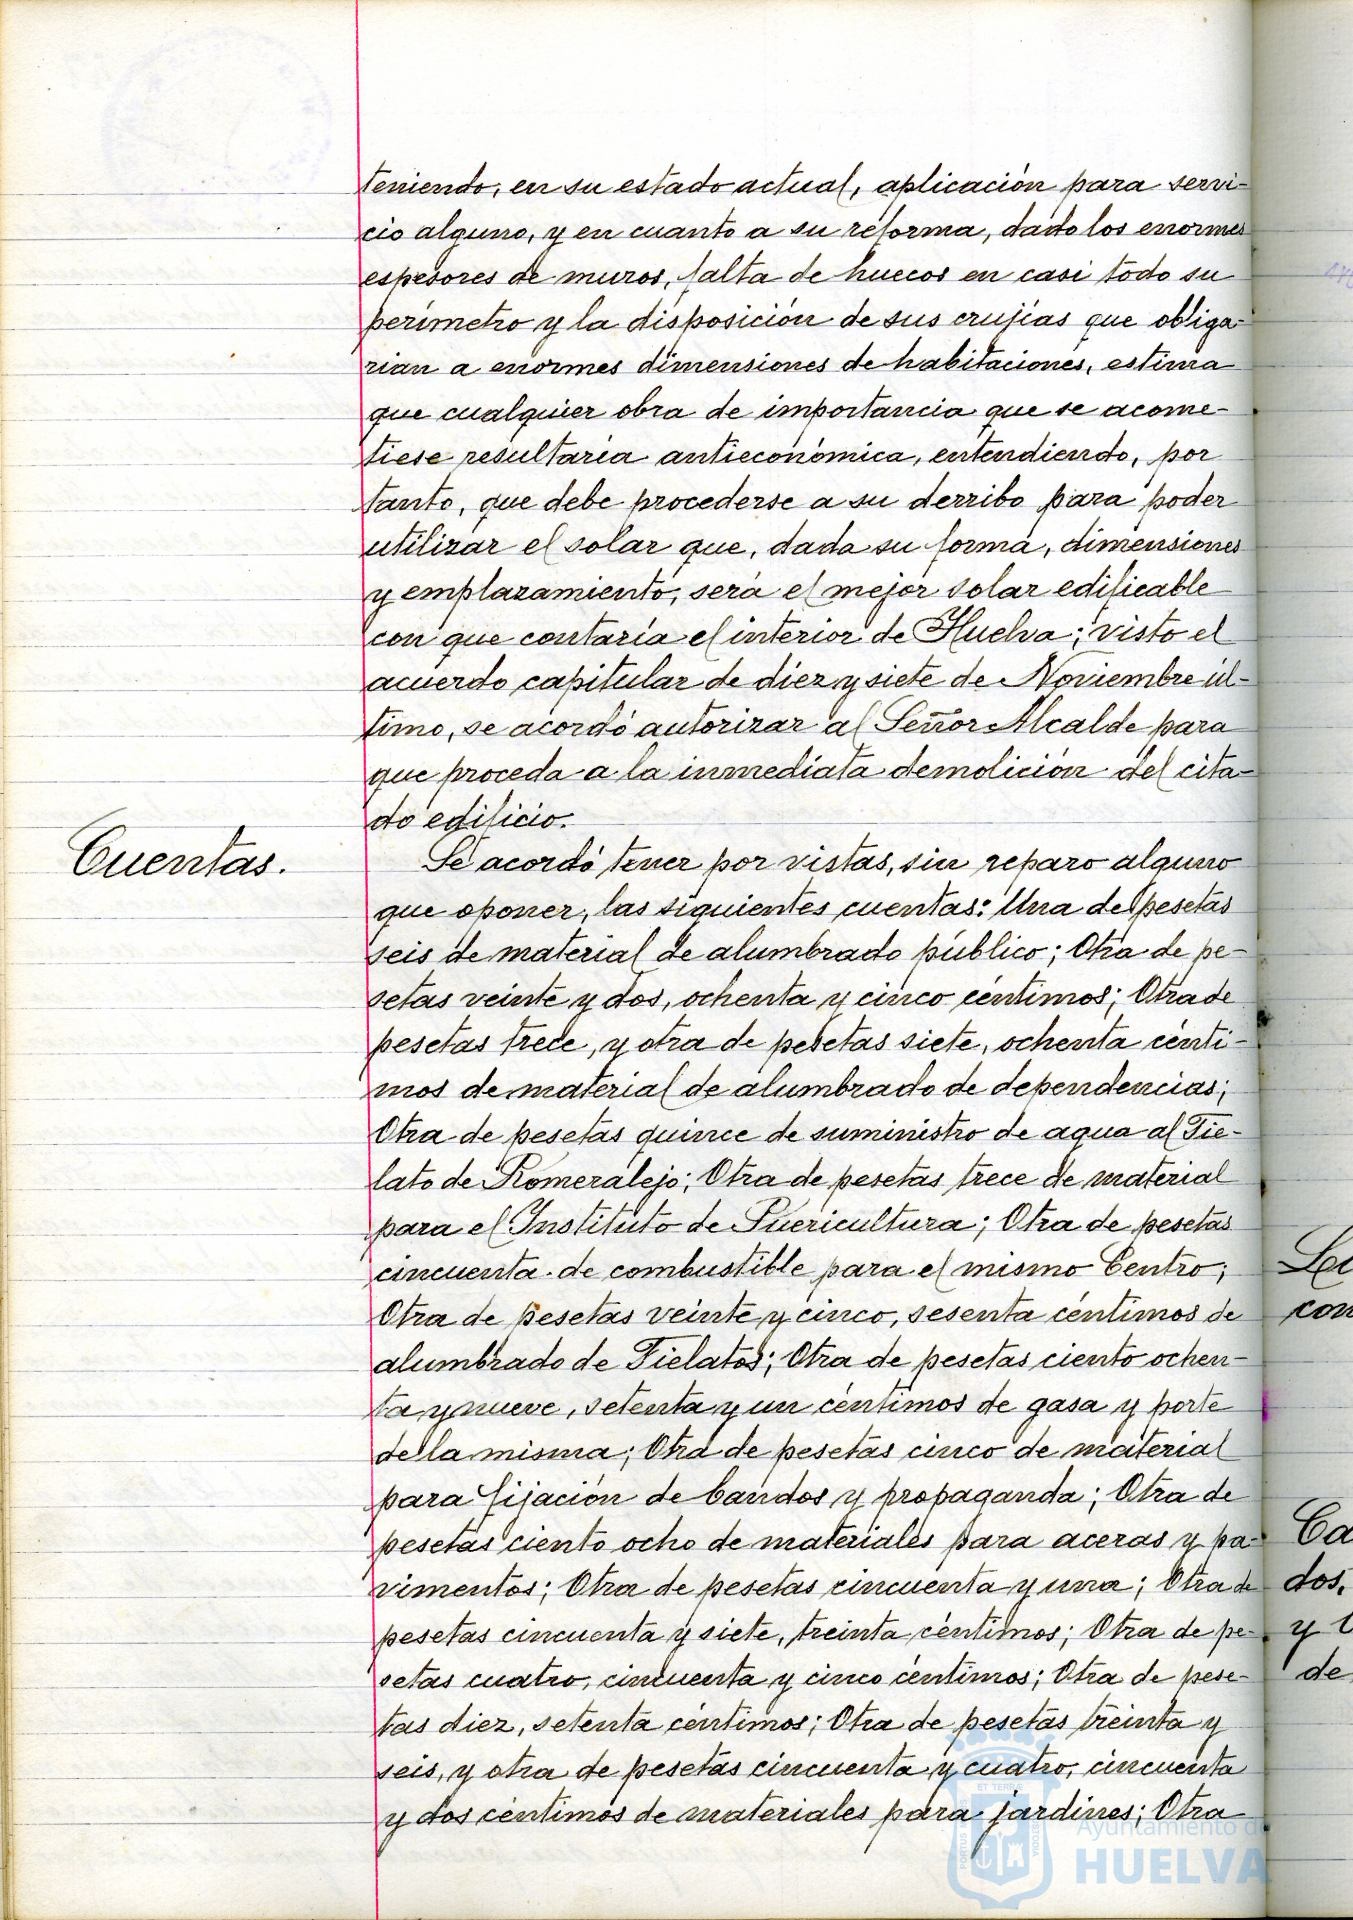 teniendo, en su estado actual, aplicación para servi-
cio alguno, y en cuanto a su reforma, dado los enormes
espesores de muros, falta de huecos en casi todo su
perímetro y la disposición de sus crujías que obliga-
rian a enormes dimensiones de habitaciones, estima
que cualquier obra de importancia que se acome-
tiese resultaría antieconómica, entendiendo, por
tanto, que debe procederse a su derribo para poder
utilizar el solar que, dada su forma, dimensiones
y emplazamiento, será el mejor solar edificable
con que contaría el interior de Huelva; visto el
acuerdo capitular de diez y siete de Noviembre úl-
timo, se acordó autorizar al Señor Alcalde para
que proceda a la inmediata demolición del cita-
do edificio.
Cuentas.
Se acordó tener por vistas, sin reparo alguno
que oponer, las siguientes cuentas: Una de pesetas
seis de material de alumbrado público; Otra de pe-
setas veinte y dos, ochenta y cinco céntimos; Otra de
pesetas trece, y otra de pesetas siete, ochenta cénti-
mos de material de alumbrado de dependencias;
Otra de pesetas quince de suministro de agua al Fie-
lato de Romeralejo; Otra de pesetas trece de material
para el Instituto de Puericultura; Otra de pesetas
cincuenta de combustible para el mismo Centro;
Otra de pesetas veinte y cinco, sesenta céntimos de
alumbrado de Fielatos; Otra de pesetas ciento ochen-
ta y nueve, setenta y un céntimos de gasa y porte
de la misma; Otra de pesetas cinco de material
para fijación de bandos y propaganda; Otra de
pesetas ciento ocho de materiales para aceras y pa-
vimentos; Otra de pesetas cincuenta y una; Otra de
pesetas cincuenta y siete, treinta céntimos; Otra de pe-
setas cuatro, cincuenta y cinco céntimos; Otra de pese-
tas diez, setenta céntimos; Otra de pesetas treinta y
seis, y otra de pesetas cincuenta y cuatro, cincuenta
y dos céntimos de materiales para jardines; Otra
Ayuntamiento de
HUELVA
con
Ca
dos.
de